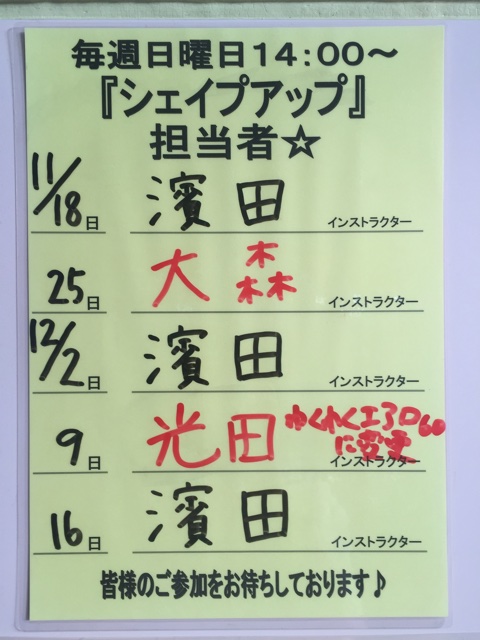 毎週日曜日14:00～
『シェイプアップ』
担当者☆
11/18日 濱田 インストラクター
25日 大森 インストラクター
12/2日 濱田 インストラクター
9日 光田 わくわくエアロ60に変更 インストラクター
16日 濱田 インストラクター
皆様のご参加をお待ちしております♪